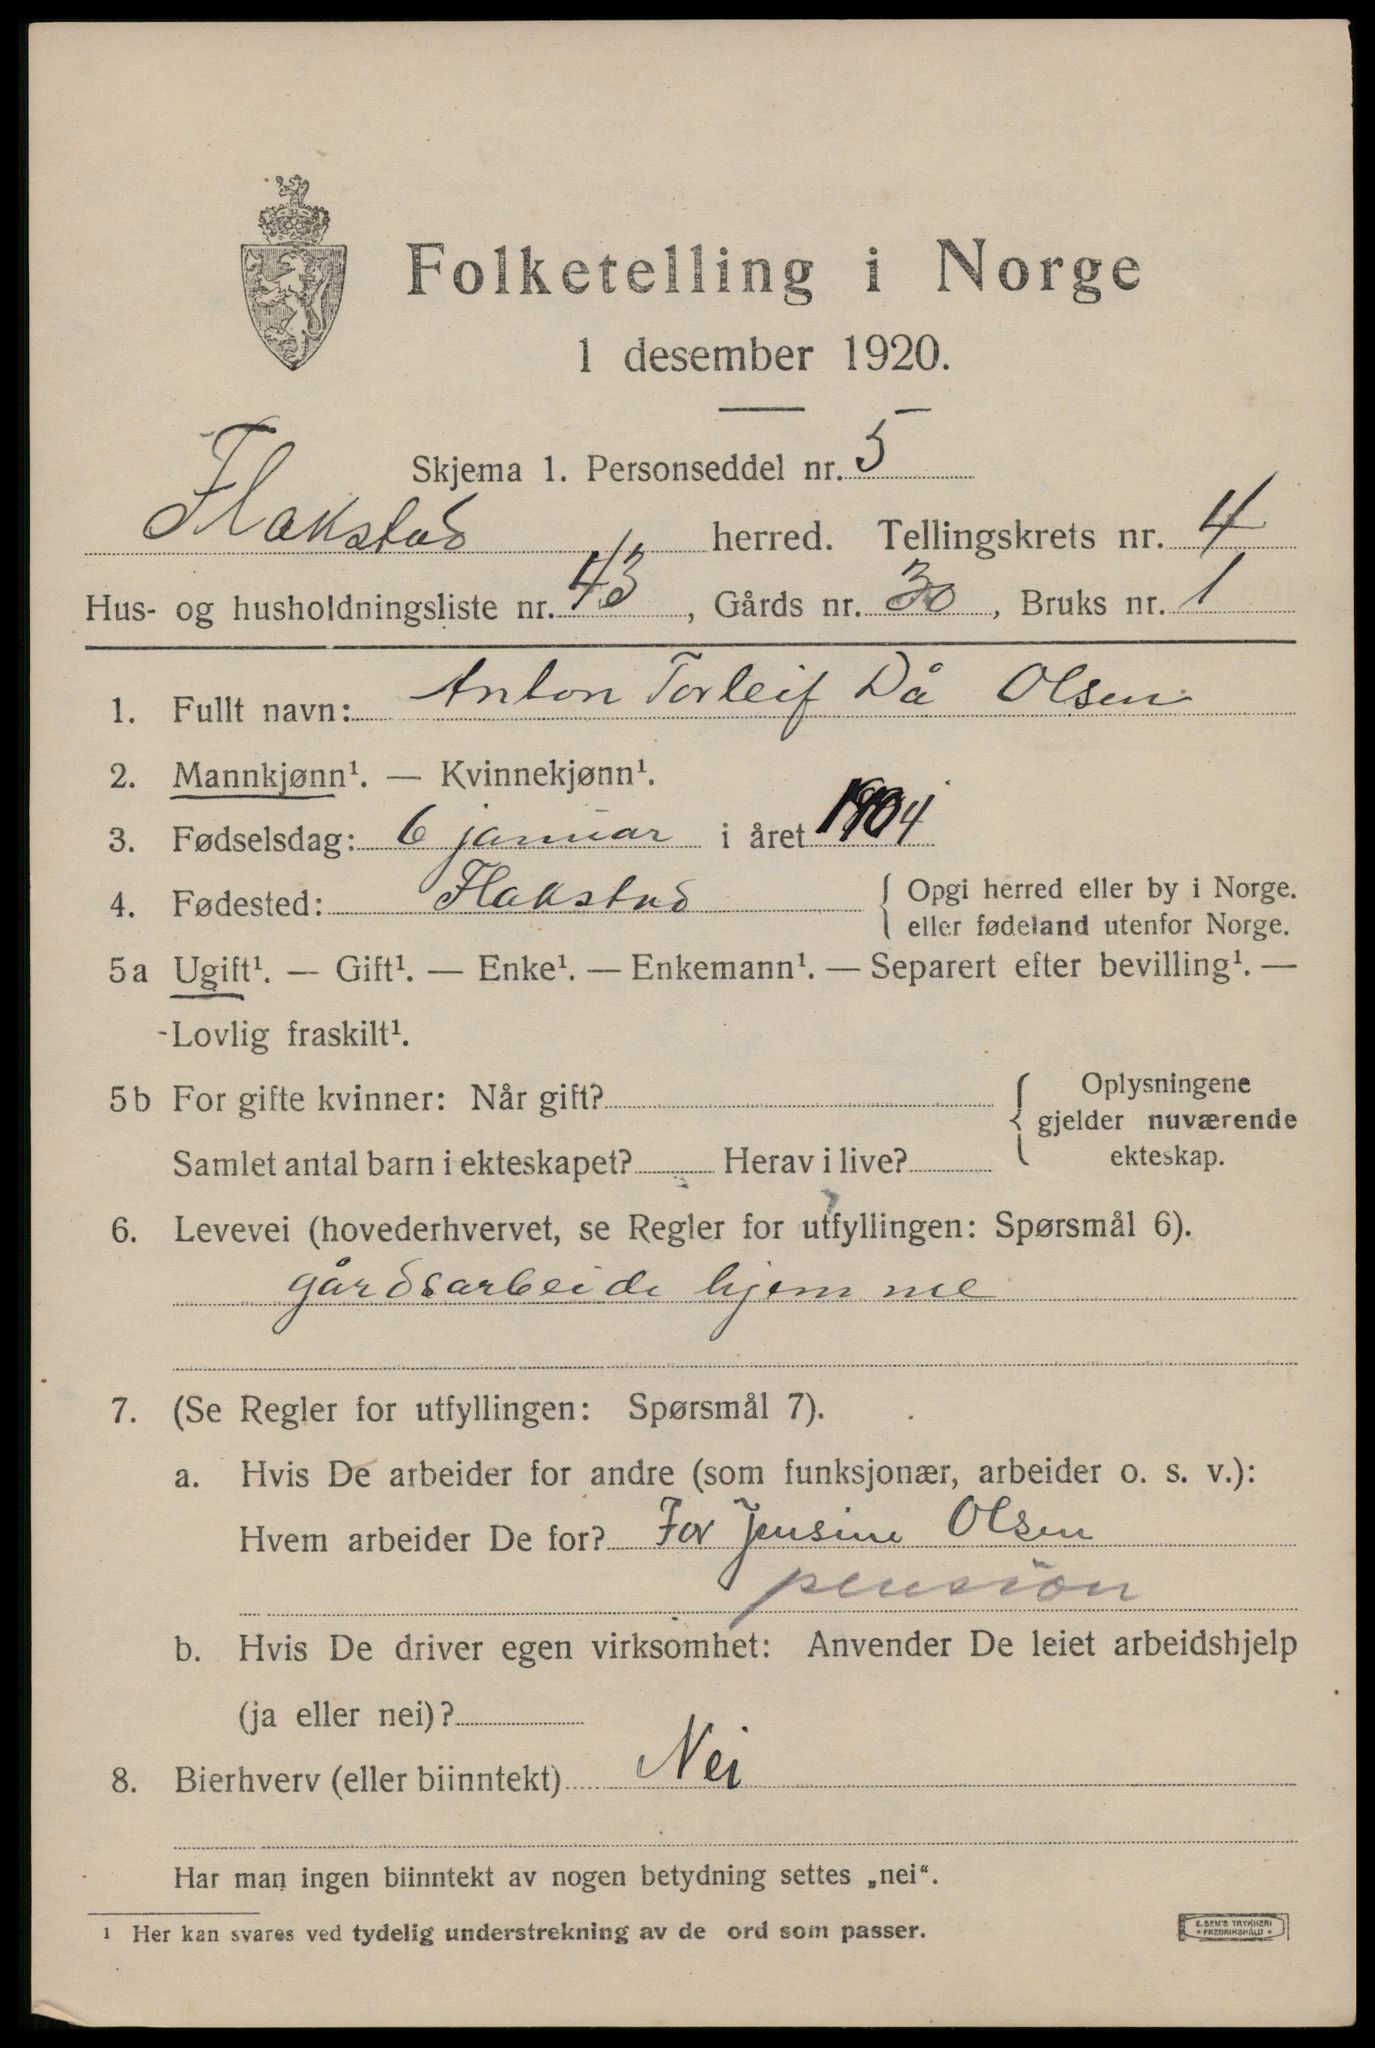 Folketelling i Norge
1 desember 1920.
Skjema 1. Personseddel nr. 5
Flakstad herred. Tellingskrets nr. 4
Hus- og husholdningsliste nr. 43, Gårds nr. 30, Bruks nr. 1
1. Fullt navn: Anton Torleif Då Olsen
2. Mannkjønn¹. — Kvinnekjønn¹.
3. Fødselsdag: 6 januar i året 1904
4. Fødested: Flakstad { Opgi herred eller by i Norge.
eller fødeland utenfor Norge.
5a Ugift¹. — Gift¹. — Enke¹. — Enkemann¹. — Separert efter bevilling¹. —
Lovlig fraskilt¹.
5b For gifte kvinner: Når gift? { Oplysningene
gjelder nuværende
Samlet antal barn i ekteskapet? Herav i live? ekteskap.
6. Levevei (hovederhvervet, se Regler for utfyllingen: Spørsmål 6).
gårdsarbeide hjemme
7. (Se Regler for utfyllingen: Spørsmål 7).
a. Hvis De arbeider for andre (som funksjonær, arbeider o. s. v.):
Hvem arbeider De for? For Jensine Olsen
pension
b. Hvis De driver egen virksomhet: Anvender De leiet arbeidshjelp
(ja eller nei)?
8. Bierhverv (eller biinntekt) Nei
Har man ingen biinntekt av nogen betydning settes „nei“.
¹ Her kan svares ved tydelig understrekning av de ord som passer.
E. SEM'S TRYKKERI
* FREDRIKSHALD *